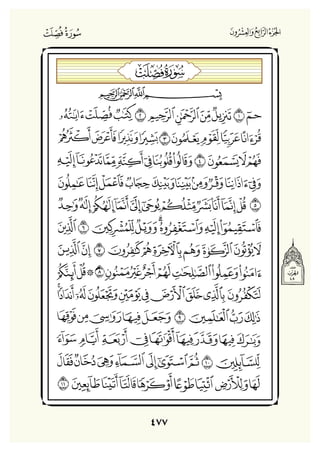 الجزء الرابع والعشرون
سورة فصلت
سورة فصلت
بسم الله الرحمن الرحيم
حمٓ ۝١ تَنزِيلٌ مِّنَ ٱلرَّحْمَٰنِ ٱلرَّحِيمِ ۝٢ كِتَٰبٌ فُصِّلَتْ ءَايَٰتُهُۥ
قُرْءَانًا عَرَبِيًّا لِّقَوْمٍ يَعْلَمُونَ ۝٣ بَشِيرًا وَنَذِيرًا فَأَعْرَضَ أَكْثَرُهُمْ
فَهُمْ لَا يَسْمَعُونَ ۝٤ وَقَالُوا۟ قُلُوبُنَا فِىٓ أَكِنَّةٍ مِّمَّا تَدْعُونَآ إِلَيْهِ
وَفِىٓ ءَاذَانِنَا وَقْرٌ وَمِنۢ بَيْنِنَا وَبَيْنِكَ حِجَابٌ فَٱعْمَلْ إِنَّنَا عَٰمِلُونَ
۝٥ قُلْ إِنَّمَآ أَنَا۠ بَشَرٌ مِّثْلُكُمْ يُوحَىٰٓ إِلَىَّ أَنَّمَآ إِلَٰهُكُمْ إِلَٰهٌ وَٰحِدٌ
فَٱسْتَقِيمُوٓا۟ إِلَيْهِ وَٱسْتَغْفِرُوهُ وَوَيْلٌ لِّلْمُشْرِكِينَ ۝٦ ٱلَّذِينَ
لَا يُؤْتُونَ ٱلزَّكَوٰةَ وَهُم بِٱلْءَاخِرَةِ هُمْ كَٰفِرُونَ ۝٧ إِنَّ ٱلَّذِينَ
ءَامَنُوا۟ وَعَمِلُوا۟ ٱلصَّٰلِحَٰتِ لَهُمْ أَجْرٌ غَيْرُ مَمْنُونٍ ۝٨ ۞ قُلْ أَئِنَّكُمْ
لَتَكْفُرُونَ بِٱلَّذِى خَلَقَ ٱلْأَرْضَ فِى يَوْمَيْنِ وَتَجْعَلُونَ لَهُۥٓ أَندَادًا
ذَٰلِكَ رَبُّ ٱلْعَٰلَمِينَ ۝٩ وَجَعَلَ فِيهَا رَوَٰسِىَ مِن فَوْقِهَا
وَبَٰرَكَ فِيهَا وَقَدَّرَ فِيهَآ أَقْوَٰتَهَا فِىٓ أَرْبَعَةِ أَيَّامٍ سَوَآءً
لِّلسَّآئِلِينَ ۝١٠ ثُمَّ ٱسْتَوَىٰٓ إِلَى ٱلسَّمَآءِ وَهِىَ دُخَانٌ فَقَالَ
لَهَا وَلِلْأَرْضِ ٱئْتِيَا طَوْعًا أَوْ كَرْهًا قَالَتَآ أَتَيْنَا طَآئِعِينَ ۝١١
٤٧٧